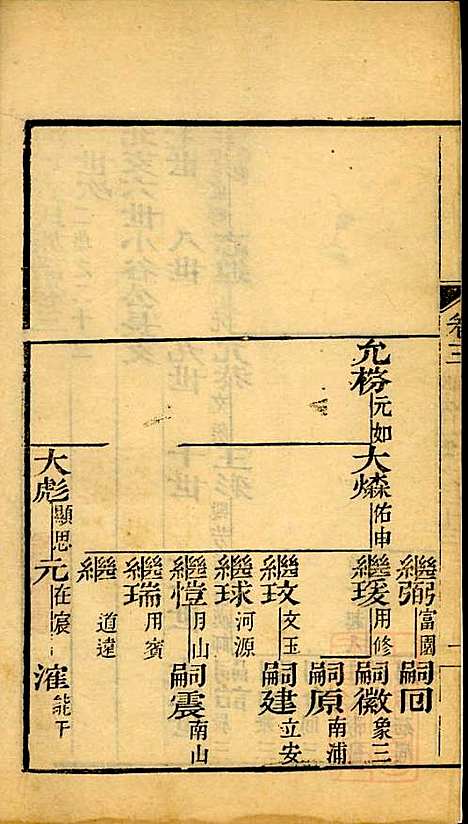 卷三
一
允 元如
大 佑申
繼弼 富園
嗣回
繼瑗 用修
嗣徽 象三
嗣原 南浦
繼玟 文玉
嗣建 立安
繼球 河源
繼愷 月山
嗣震 南山
繼瑞 用賓
繼 道遠
大彪 顯思
元 在宸
淮 能下